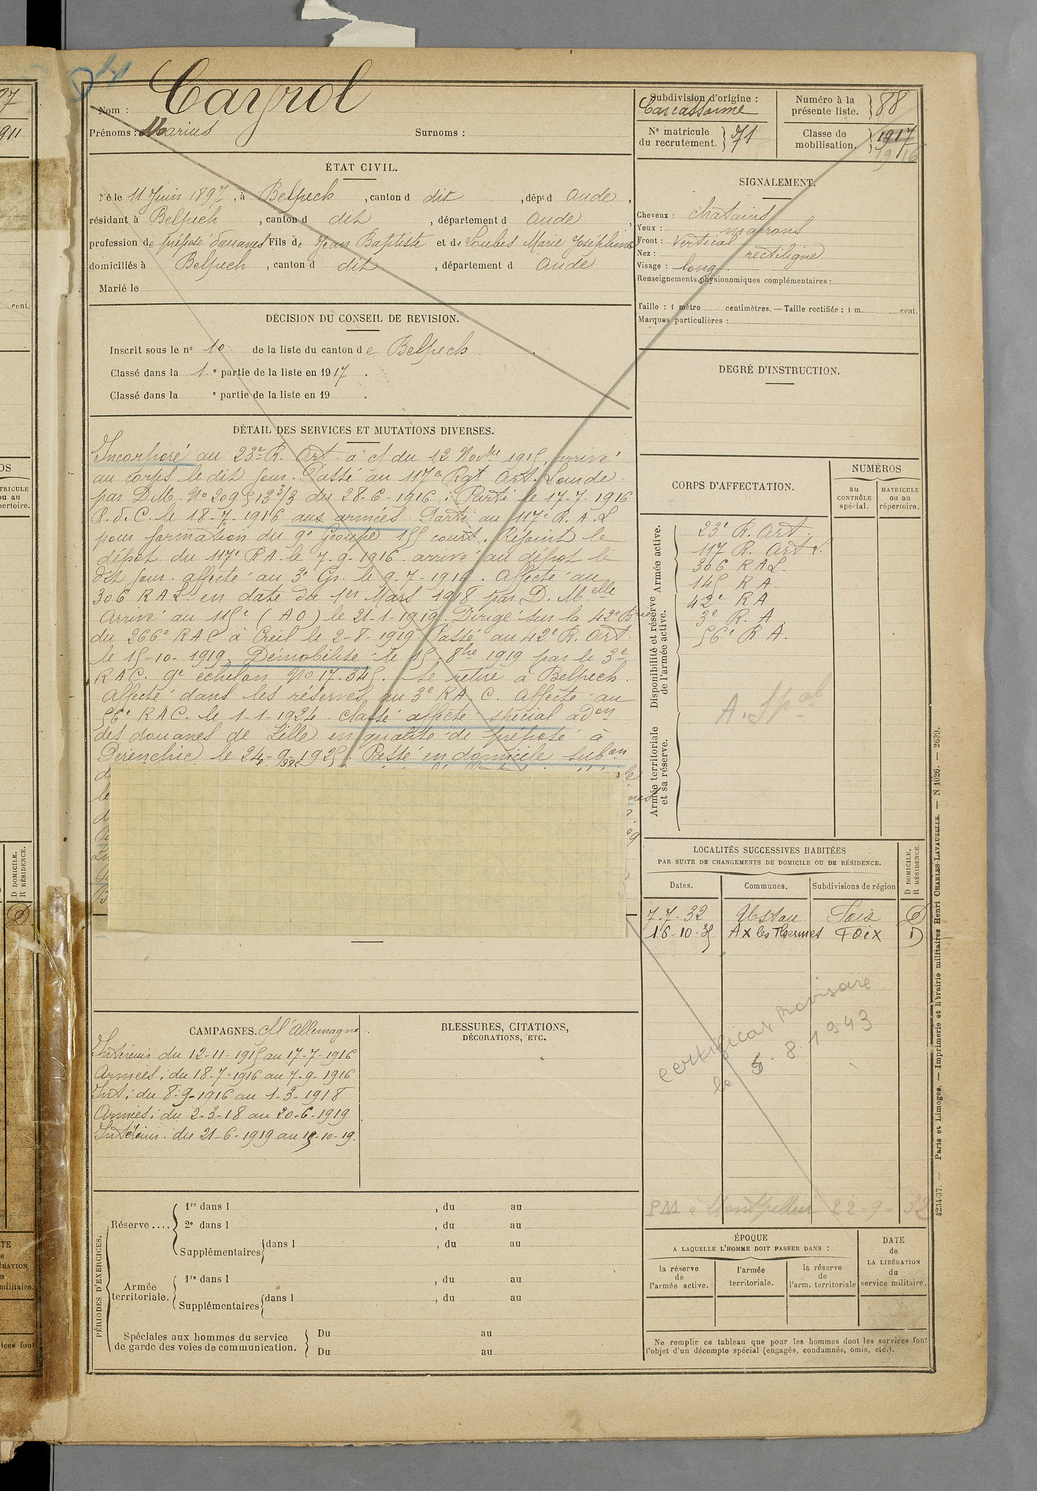 Nom : Cayrol
Prénoms : Marius Surnoms :
ÉTAT CIVIL.
Né le 11 Juin 1897, à Belpech, canton d dit, dép^t d Aude,
résidant à Belpech, canton d dit, département d Aude
profession de préposé douanes Fils de Jean Baptiste et de Loubes Marie Joséphine
domiciliés à Belpech, canton d dit, département d Aude
Marié le
DÉCISION DU CONSEIL DE REVISION.
Inscrit sous le n° 10 de la liste du canton de Belpech
Classé dans la 1.e partie de la liste en 1917.
Classé dans la e partie de la liste en 19 .
DÉTAIL DES SERVICES ET MUTATIONS DIVERSES.
Incorporé au 23e R. Art. à c/ du 12 Novbre 1915, arrivé
au corps le dit jour. Passé au 117e Rgt Art. Lourde
par D.M. No 20951 3/3 du 28-6-1916. Parti le 17-7-1916
le 18-7-1916 aux armées. Parti au 117e R.A.L
pour formation du 9e groupe 155 court. Rejoint le
dépôt du 117e RA le 7-9-1916 arrivé au dépôt le
dit jour. affecté au 3e Gr. le 9-7-1916. Affecté au
306 RAL en date du 1er Mars 1918 par D. Melle
Arrivé au 115e (AO) le 21-1-1919. Dirigé sur la 42e Bie
du 266e RAC à Creil le 2-8-1919 Passé au 42e R. Art.
le 15-10-1919. Démobilisé le 15 8bre 1919 par le 3e
RAC. 9e échelon No 17.345. Se retire à Belpech.
Affecté dans les réserves au 3e RA C. Affecté au
56e RAC. le 1-1-1924. Classé affecté spécial adon
des douanes de Lille en qualité de préposé à
le 24-9-1925. Passé en domicile subon
CAMPAGNES. C/ l'Allemagne.
Intérieur du 12-11-1915 au 17-7-1916
Armées : du 18-7-1916 au 7-9-1916
Int : du 8-9-1916 au 1-3-1918
Armées : du 2-3-18 au 20-6-1919
Intérieur : du 21-6-1919 au 15-10-19
BLESSURES, CITATIONS,
DÉCORATIONS, ETC.
PÉRIODES D'EXERCICES.
Réserve.... 1re dans l , du au
2e dans l , du au
Supplémentaires dans l , du au
Armée territoriale. 1re dans l , du au
Supplémentaires dans l , du au
Spéciales aux hommes du service
de garde des voies de communication.
Du au
Du au
Subdivision d'origine :
Carcassonne
N° matricule
du recrutement. 71
Numéro à la
présente liste. 88
Classe de
mobilisation. 1917
1916
SIGNALEMENT.
Cheveux : chatains
Yeux : marrons
Front : Vertical
Nez : rectiligne
Visage : long
Renseignements physionomiques complémentaires :
Taille : 1 mètre centimètres. — Taille rectifiée : 1 m. cent.
Marques particulières :
DEGRÉ D'INSTRUCTION.
CORPS D'AFFECTATION.
NUMÉROS
AU CONTRÔLE spécial.
MATRICULE ou au répertoire.
Armée active.
Disponibilité et réserve de l'armée active.
Armée territoriale et sa réserve.
23e R. Art.
117 R. Art.
306 RAL
145 RA.
42e RA
3e R. A.
56e RA.
A. Spal
LOCALITÉS SUCCESSIVES HABITÉES
PAR SUITE DE CHANGEMENTS DE DOMICILE OU DE RÉSIDENCE.
Dates. Communes. Subdivisions de région
D DOMICILE.
R RÉSIDENCE.
7-7-32 Ustou Foix D
16-10-35 Ax les Thermes Foix D
certificat provisoire
le 5.8.1943
PM à Montpellier 22-9-32
ÉPOQUE
A LAQUELLE L'HOMME DOIT PASSER DANS :
la réserve
de
l'armée active.
l'armée
territoriale.
la réserve
de
l'arm. territoriale
DATE
de
LA LIBÉRATION
du
service militaire.
Ne remplir ce tableau que pour les hommes dont les services font
l'objet d'un décompte spécial (engagés, condamnés, omis, etc.).
4234-37. — Paris et Limoges. — Imprimerie et librairie militaires Henri CHARLES-LAVAUZELLE. — N 1026. — 2639.